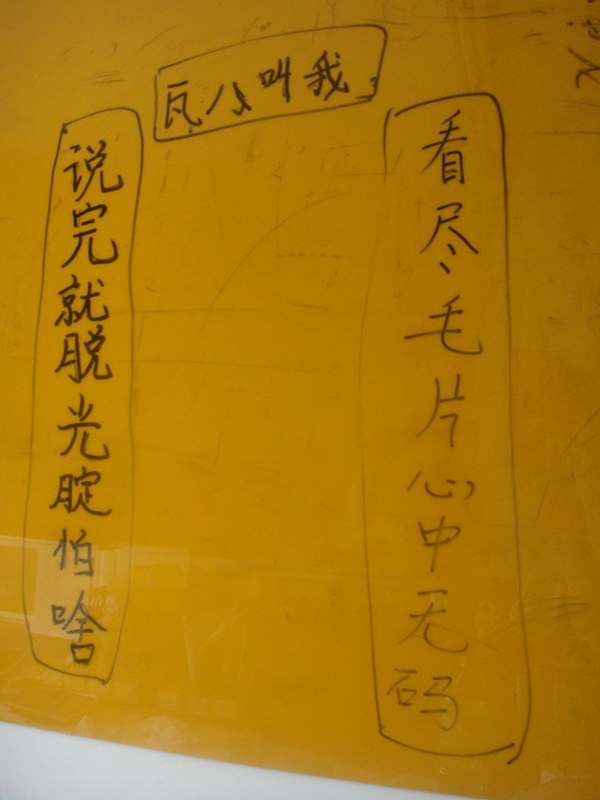 瓦公叫我
看尽毛片心中无码
说完就脱光腚怕啥